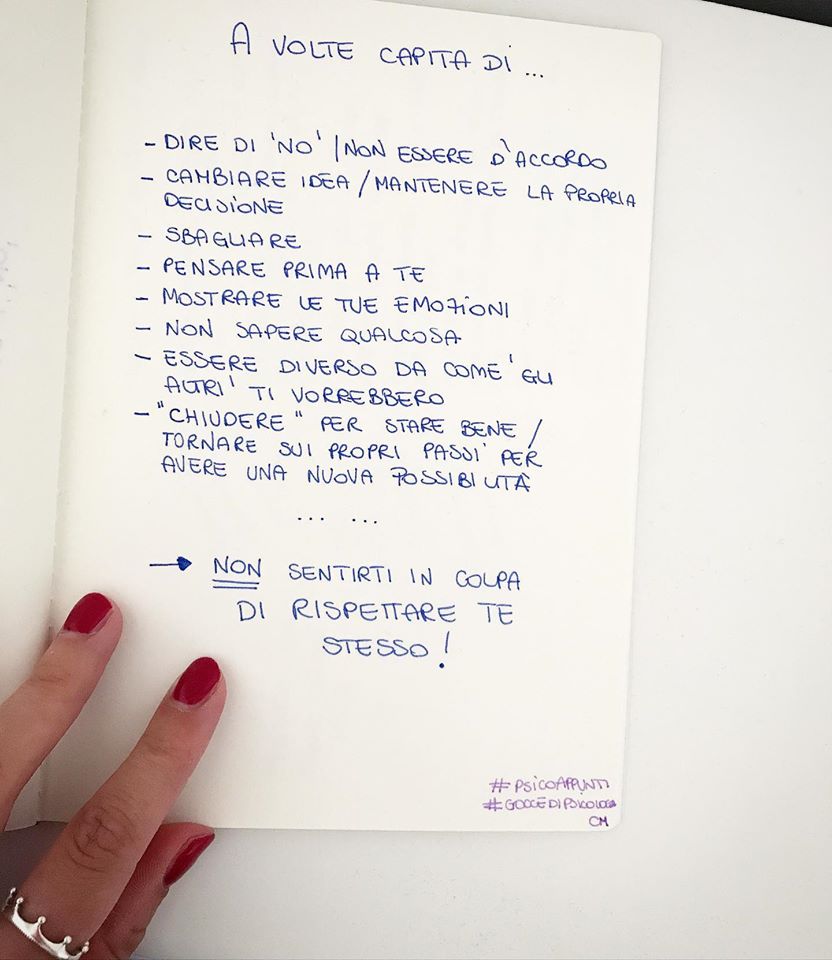 A VOLTE CAPITA DI ...
- DIRE DI 'NO' / NON ESSERE D'ACCORDO
- CAMBIARE IDEA / MANTENERE LA PROPRIA
DECISIONE
- SBAGLIARE
- PENSARE PRIMA A TE
- MOSTRARE LE TUE EMOZIONI
- NON SAPERE QUALCOSA
- ESSERE DIVERSO DA COME 'GLI
ALTRI' TI VORREBBERO
- "CHIUDERE" PER STARE BENE /
TORNARE SUI PROPRI PASSI PER
AVERE UNA NUOVA POSSIBILITÀ
... ...
→ NON SENTIRTI IN COLPA
DI RISPETTARE TE
STESSO!
#PSICOAPPUNTI
#GOCCEDIPSICOLOGIA
CM